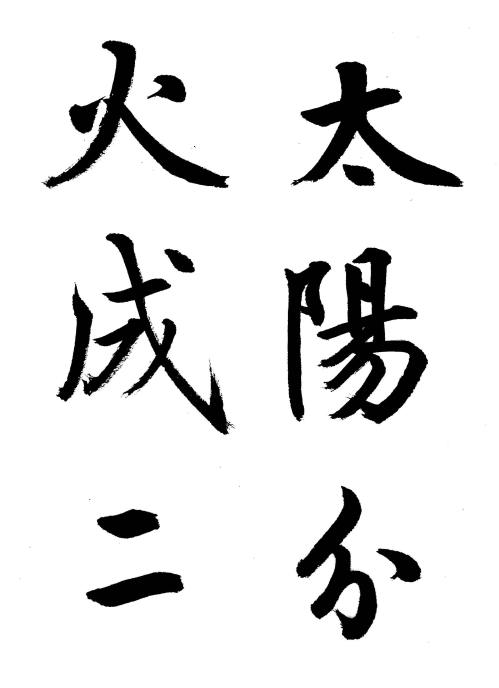 太陽分
火成二